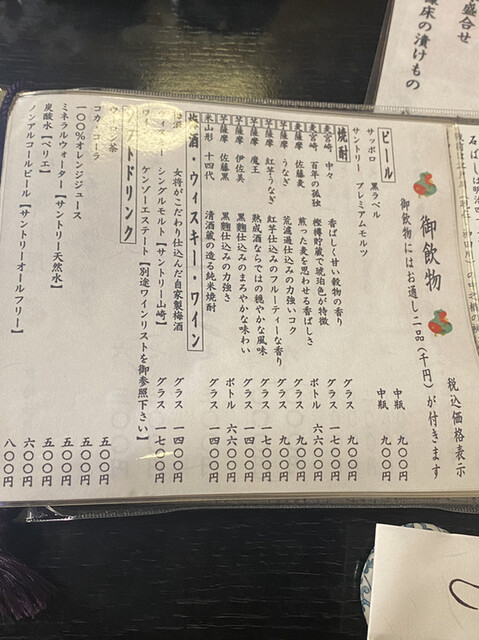 盛合せ
床の漬けもの
御飲物
税込価格表示
御飲物にはお通し二品(千円)が付きます
ビール
サッポロ 黒ラベル 中瓶 九〇〇円
サントリー プレミアムモルツ 中瓶 九〇〇円
焼酎
麦 宮崎 中々 香ばしく甘い穀物の香り グラス 九〇〇円
麦 宮崎 百年の孤独 樫樽貯蔵で琥珀色が特徴 グラス 一七〇〇円
ボトル 六六〇〇円
麦 薩摩 佐藤麦 煎った麦を思わせる香ばしさ グラス 九〇〇円
芋 薩摩 うなぎ 荒濾過仕込みの力強いコク グラス 九〇〇円
芋 薩摩 紅芋うなぎ 紅芋仕込みのフルーティーな香り グラス 九〇〇円
芋 薩摩 魔王 熟成酒ならではの穏やかな風味 グラス 一七〇〇円
芋 薩摩 伊佐美 黒麹仕込みのまろやかな味わい グラス 一四〇〇円
芋 薩摩 佐藤黒 黒麹仕込みの力強さ ボトル 六六〇〇円
米 山形 十四代 清酒蔵の造る純米焼酎 グラス 一四〇〇円
梅酒・ウィスキー・ワイン
女将がこだわり仕込んだ自家製梅酒 グラス 一四〇〇円
シングルモルト【サントリー山崎】 グラス 一七〇〇円
ケンゾーエステート【別途ワインリストを御参照下さい】
ソフトドリンク
ウーロン茶 五〇〇円
コカ・コーラ 五〇〇円
一〇〇%オレンジジュース 五〇〇円
ミネラルウォーター【サントリー天然水】 五〇〇円
炭酸水【ペリエ】 六〇〇円
ノンアルコールビール【サントリーオールフリー】 八〇〇円